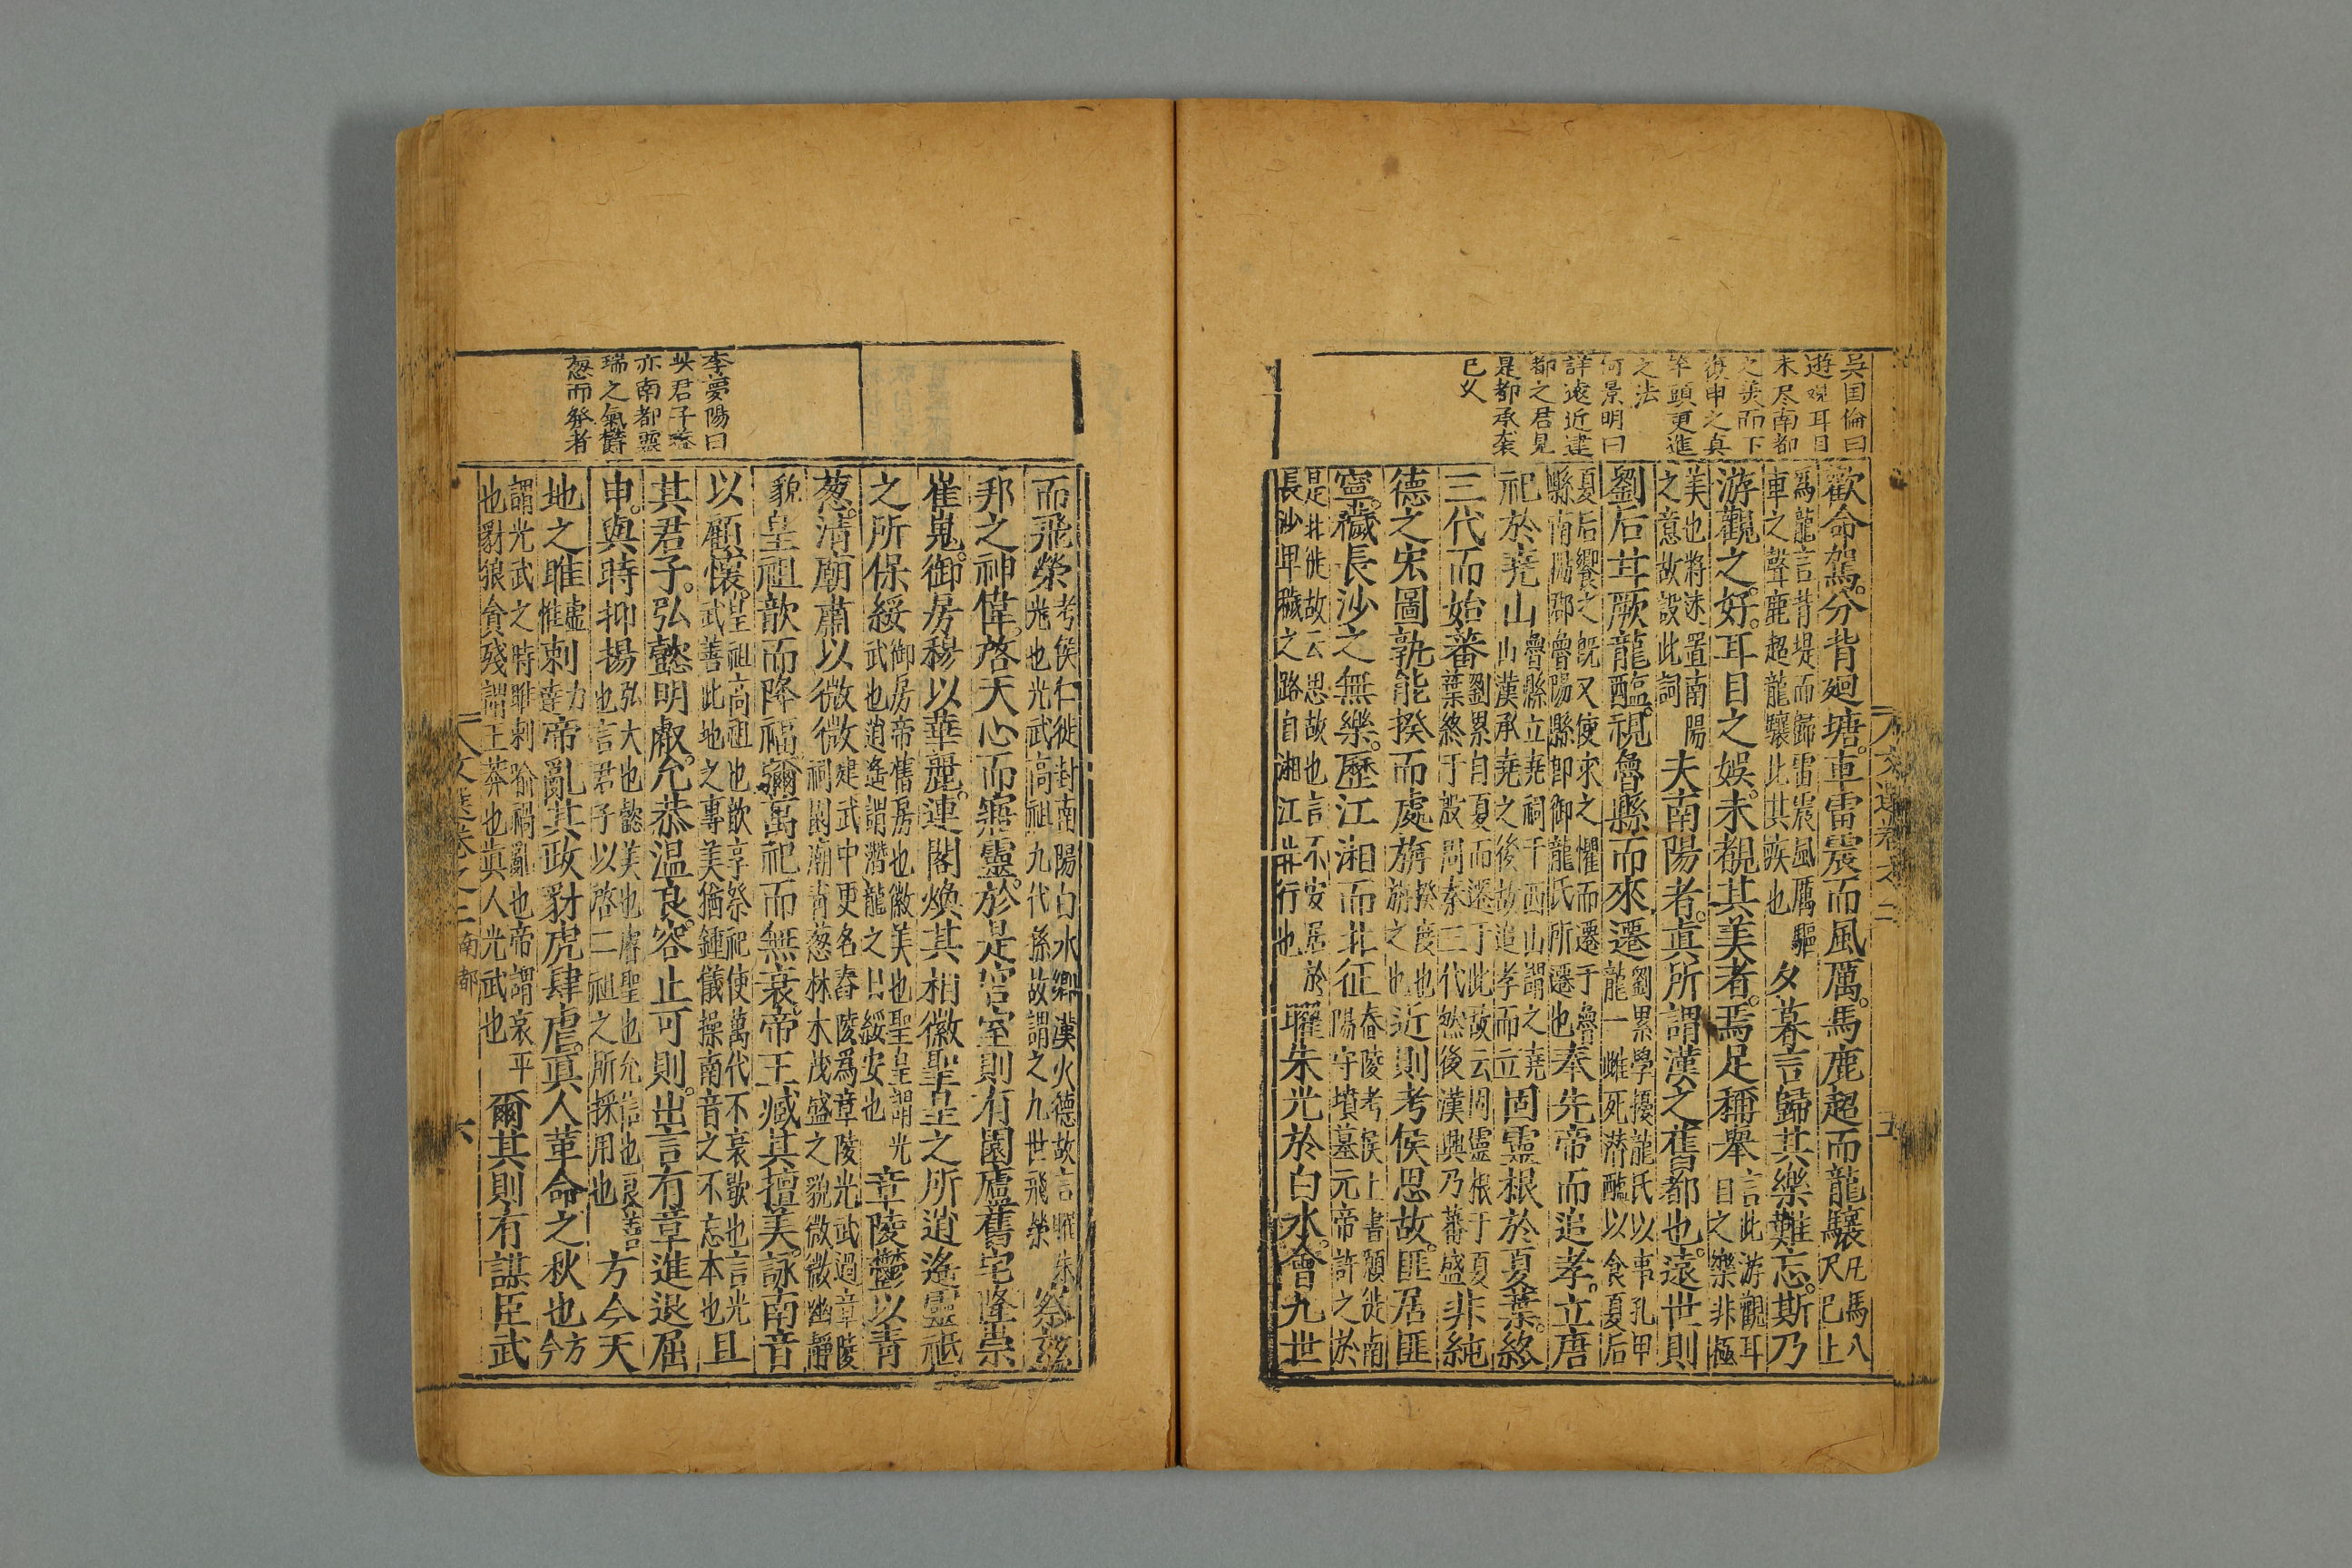 吳国倫曰
遊观耳目
未尽南都
之美而下
復申之真
竿頭更進
之法
何景明曰
詳遠近建
都之君見
是都承袭
已乂
歡命駕。分背廻塘。車雷震而風厲。馬鹿超而龍驤凡馬八尺已上
爲龍言背堤而歸雷震風厲驅車之聲鹿超龍驤此其疾也夕暮言歸其樂難忘。斯乃
游觀之。好。耳目之娛。未覩其美者。焉足稱舉言此游觀耳目之樂非極
美也將沐置南陽之意故設此詞夫南陽者。眞所謂漢之舊都也。遠世則
劉后甘厥龍醢。視魯縣而來遷劉累學擾龍氏以事孔甲龍一雌死潜醢以食夏后
夏后饗之既又使求之懼而遷于魯縣南陽郡魯陽縣卽御龍氏所遷也奉先帝而追孝。立唐
祀於堯山魯縣立堯祠于西山謂之堯山漢承堯之後故追孝而立固靈根於夏葉。終
三代而始蕃劉累自夏而遷于此故云固靈根于夏葉終于殷周秦三代然後漢興乃蕃盛非純
德之宏圖孰能揆而處旃揆度也旃之也近則考侯思故。匪居匪
寧。穢長沙之無樂。歷江湘而北征舂陵考侯上書願徙南陽守墳墓元帝許之於
是北徙故云思故也言不安居於長沙卑穢之路自湘江北行也曜朱光於白水。會九世
文選卷之二
五
李夢陽曰
吳君子益
亦南都靈
瑞之氣欝
葱而發者
而飛榮考侯仁徙封南陽白水鄉漢火德故言曜朱光也光武高祖九代孫故謂之九世飛榮察兹
邦之神偉。啓天心而寤靈。於是宮室則有園廬舊宅隆崇
崔嵬。御房穆以華麗。連閣煥其相徽聖皇之所逍遙靈祗
之所保綏御房帝舊房也徽美也聖皇謂光武也逍遙謂潛龍之日綏安也章陵鬱以青
葱。清廟肅以微微建武中更名舂陵爲章陵光武過章陵祠園廟青葱林木茂盛之貌微微幽靜
貌皇祖歆而降福。彌萬祀而無衰。帝王臧其擅美。詠南音
以顧懷。皇祖高祖也歆享祭祀使萬代不衰歇也言光武善此地之專美猶鍾儀操南音之不忘本也且
其君子。弘懿明叡。允恭温良。容止可則。出言有章進退屈
申。與時抑揚弘大也懿美也睿聖也允信也良善也言君子以啓二祖之所採用也方今天
地之睢惟虛刺力達帝亂其政豺虎肆虐。眞人革命之秋也今方
謂光武之時睢刺喻禍亂也帝謂哀平也豺狼貪殘謂王莽也眞人光武也爾其則有謀臣武
文選卷之三南都
六